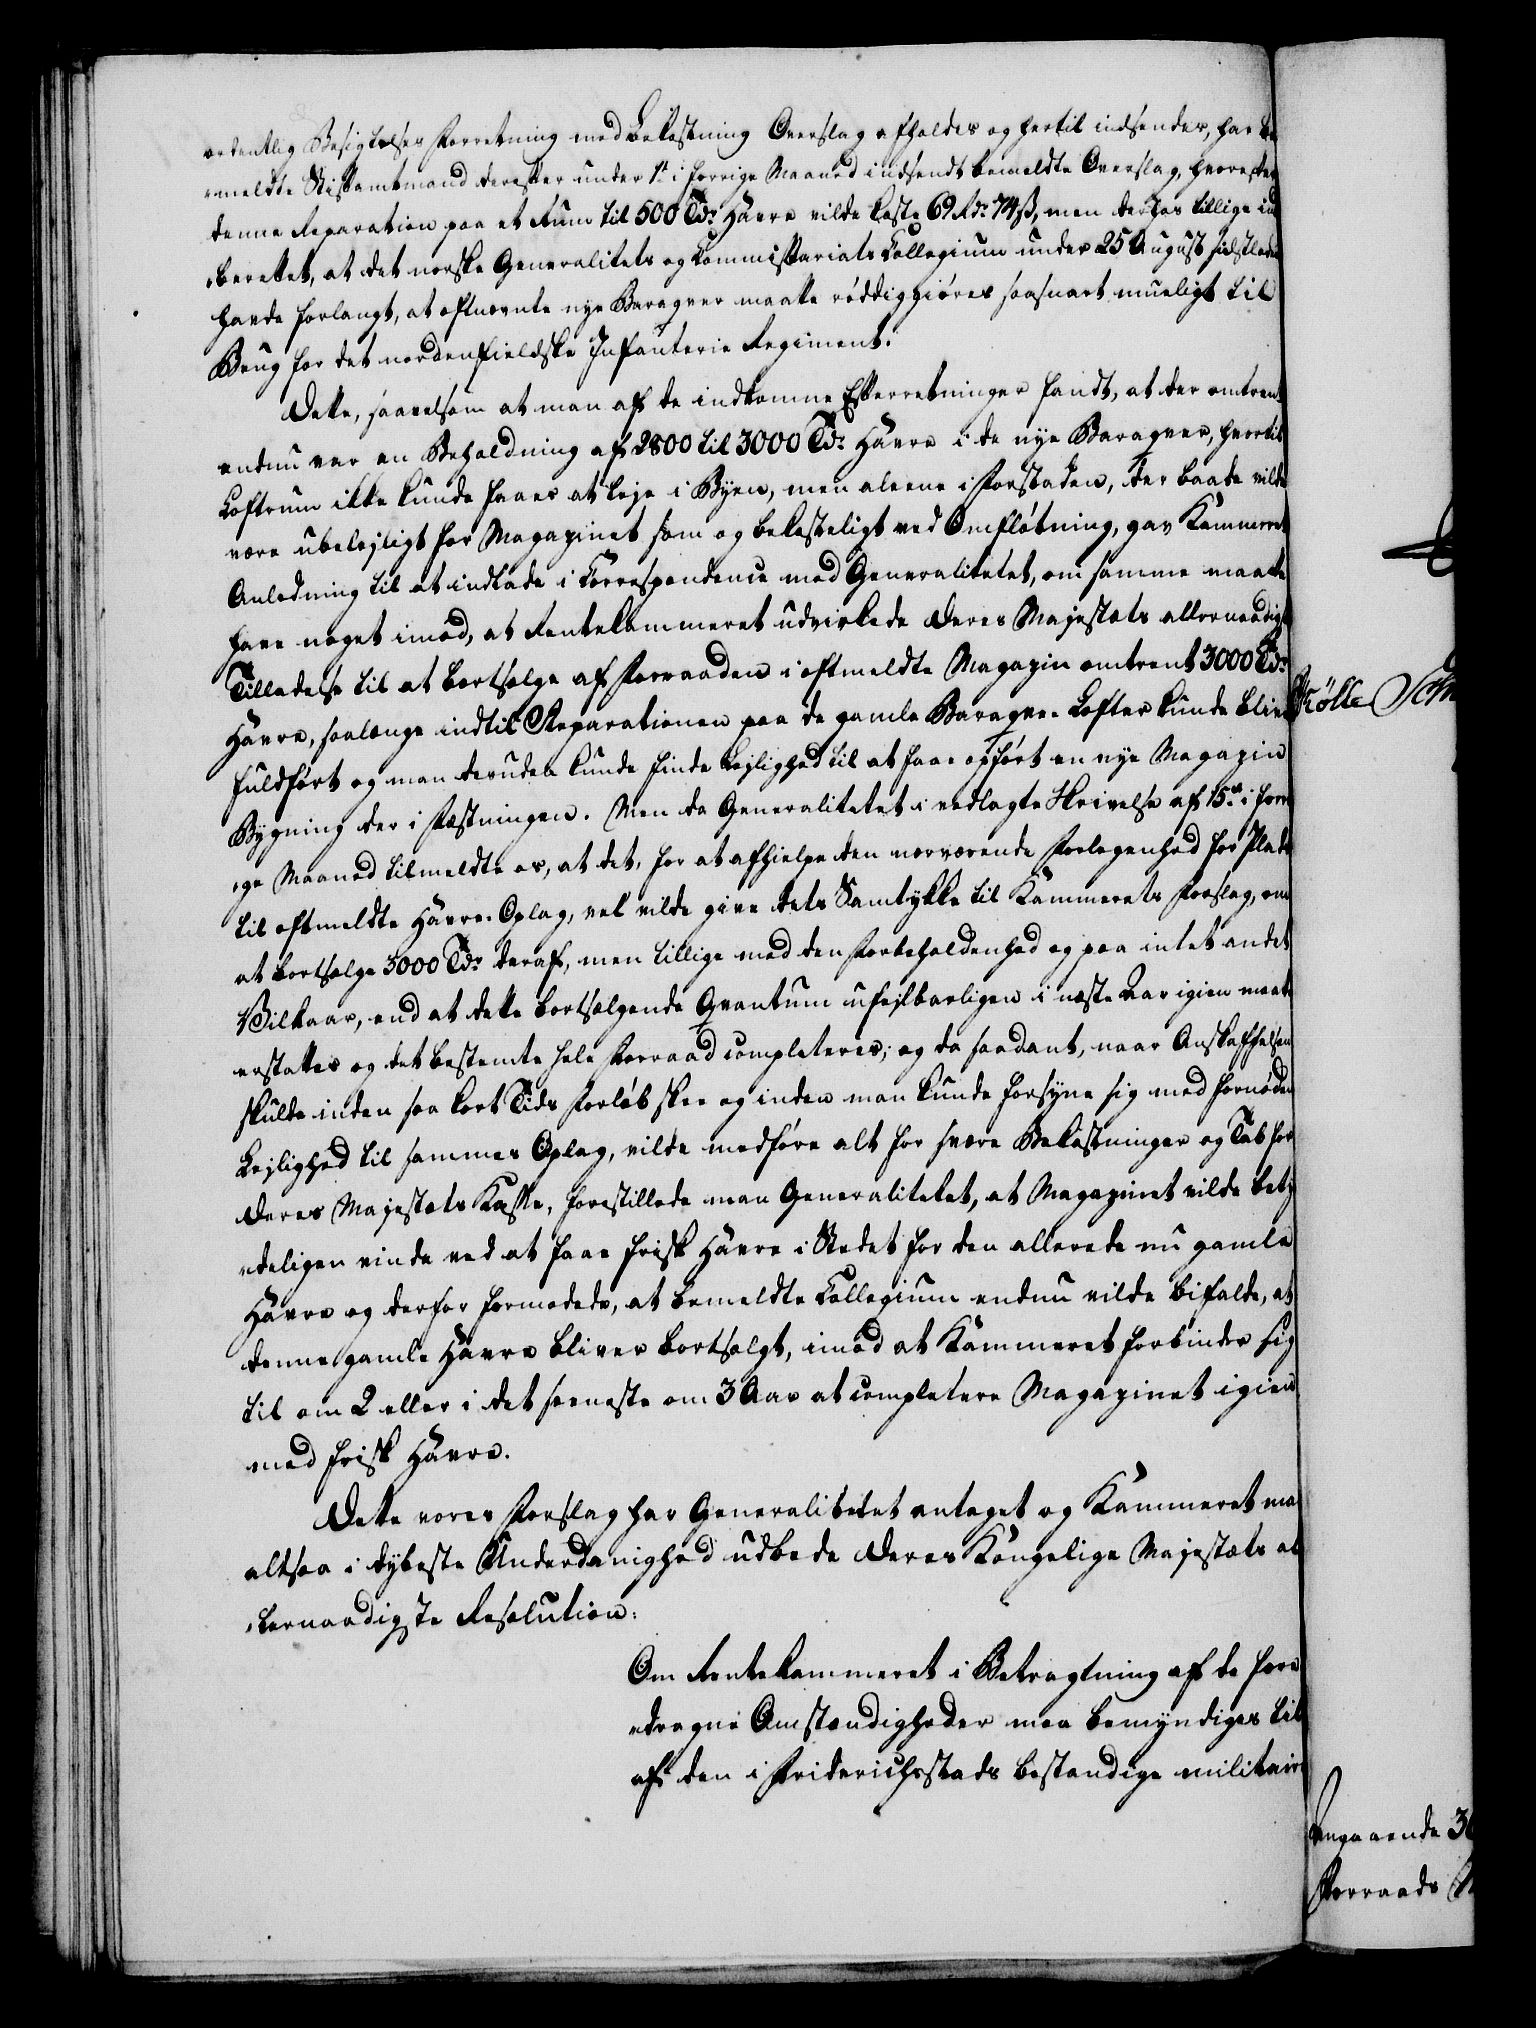 ordentlig Besigtelses Forretning med Bekostning Overslag afholdes og hertil indsendes, har be
"meldte Stiftamtmand derefter under 1te i forrige Maaned indsendt bemeldte Overslag, hvorefter
denne Reparation paa et Rum til 500 Tdr Havre vilde koste 69 Rdr 74 ß, men derhos tillige ind
"berettet, at det norske Generalitets og Commissariats Collegium under 25 August sidstleden
havde forlangt, at oftnevnte nye Baraqver maatte røddiggiøres saasnart mueligt til
Brug for det nordenfieldske Infanterie Regiment.
Dette, saavelsom at man af de indkomne Efterretninger fandt, at der omtrent
endnu var en Beholdning af 2800 til 3000 Tdr Havre i de nye Baraqver, hvortil
Loftrum ikke kunde faaes at leje i Byen, men aleene i Forstaden, der baade vilde
være ubelejligt for Magazinet som og bekosteligt ved Omfløtning, gav Kammeret
Anledning til at indlade i Correspondence med Generalitetet, om samme maatte
have noget imod, at Rentekammeret udvirkede Deres Majestæts allernaadigst
Tilladelse til at bortsælge af Forraaden i oftmeldte Magazin omtrent 3000 Tdr
Havre, saalænge indtil Reparationen paa de gamle Baraqve-Lofter kunde blive
fuldført og man desuden kunde finde Lejlighed til at faae opført en nye Magazin
Bygning der i Fæstningen. Men da Generalitetet i vedlagte Skrivelse af 15de i forri
"ge Maaned tilmeldte os, at det, for at afhielpe den nærværende Forlegenhed for Plads
til oftmeldte Havre-Oplag, vel vilde give dets Samtykke til Kammerets Forslag, om
at bortsælge 3000 Tdr deraf, men tillige med den Forbeholdenhed og paa intet andet
Vilkaar, end at dette bortsælgende Qvantum ufejlbarligen i næste Aar igien maatte
erstattes og det bestemte hele Forraad completeres; og da saadant, naar Anskaffelsen
skulde inden saa kort Tids Forløb skee og inden man kunde forsyne sig med fornøden
Lejlighed til sammes Oplag, vilde medføre alt for svære Bekostninger og Tab for
Deres Majestæts Kasse, forestillede man Generalitetet, at Magazinet vilde bety
"deligen vinde ved at faae frisk Havre i Stedet for den allerede nu gamle
Havre og derfor formodede, at bemeldte Collegium endnu vilde bifalde, at
denne gamle Havre bliver bortsolgt, imod at Kammeret forbinder sig
til om 2 eller i det seeneste om 3 Aar at completere Magazinet igien
med frisk Havre.
Dette vores Forslag har Generalitetet antaget og Kammeret maa
altsaa i dybeste Underdanighed udbede Deres Kongelige Majestæts al
"lernaadigste Resolution:
Om Rentekammeret i Betragtning af de fore
"dragne Omstændigheder maa bemyndiges til
af den i Friderichsstads bestandige militaire
Kølle
angaaende
Forraads